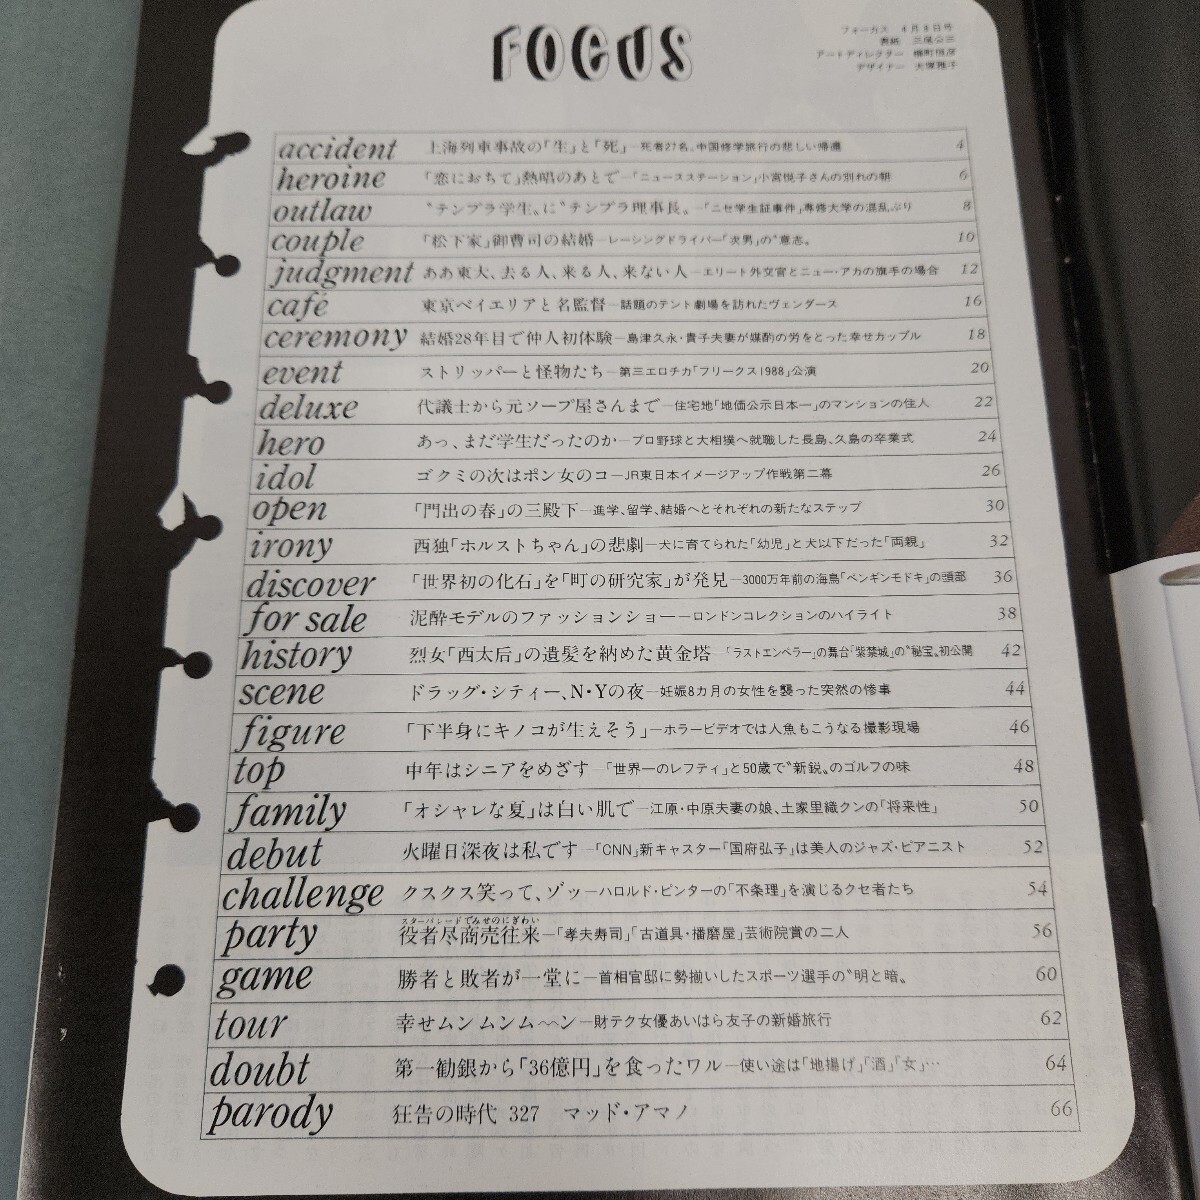 FOCUS
フォーカス 4月8日号
表紙 三尾公三
アートディレクター
デザイナー 大塚雅子
accident 上海列車事故の「生」と「死」―死者27名、中国修学旅行の悲しい帰還 4
heroine 「恋におちて」熱唱のあとで―「ニュースステーション」小宮悦子さんの別れの朝 6
outlaw 〝テンプラ学生〟に〝テンプラ理事長〟―「ニセ学生証事件」専修大学の混乱ぶり 8
couple 「松下家」御曹司の結婚―レーシングドライバー「次男」の〝意志〟 10
judgment ああ東大、去る人、来る人、来ない人―エリート外交官とニュー・アカの旗手の場合 12
café 東京ベイエリアと名監督―話題のテント劇場を訪れたヴェンダース 16
ceremony 結婚28年目で仲人初体験―島津久永・貴子夫妻が媒酌の労をとった幸せカップル 18
event ストリッパーと怪物たち―第三エロチカ「フリークス1988」公演 20
deluxe 代議士から元ソープ屋さんまで―住宅地「地価公示日本一」のマンションの住人 22
hero あっ、まだ学生だったのか―プロ野球と大相撲へ就職した長島、久島の卒業式 24
idol ゴクミの次はポン女のコ―JR東日本イメージアップ作戦第二幕 26
open 「門出の春」の三殿下―進学、留学、結婚へとそれぞれの新たなステップ 30
irony 西独「ホルストちゃん」の悲劇―犬に育てられた「幼児」と犬以下だった「両親」 32
discover 「世界初の化石」を「町の研究家」が発見―3000万年前の海鳥「ペンギンモドキ」の頭部 36
for sale 泥酔モデルのファッションショー―ロンドンコレクションのハイライト 38
history 烈女「西太后」の遺髪を納めた黄金塔―「ラストエンペラー」の舞台「紫禁城」の〝秘宝〟初公開 42
scene ドラッグ・シティー、N・Yの夜―妊娠8カ月の女性を襲った突然の惨事 44
figure 「下半身にキノコが生えそう」―ホラービデオでは人魚もこうなる撮影現場 46
top 中年はシニアをめざす―「世界一のレフティ」と50歳で〝新鋭〟のゴルフの味 48
family 「オシャレな夏」は白い肌で―江原・中原夫妻の娘、土家里織クンの「将来性」 50
debut 火曜日深夜は私です―「CNN」新キャスター「国府弘子」は美人のジャズ・ピアニスト 52
challenge クスクス笑って、ゾッ―ハロルド・ピンターの「不条理」を演じるクセ者たち 54
スターパレードでみせのにぎわい
party 役者尽商売往来―「孝夫寿司」「古道具・播磨屋」芸術院賞の二人 56
game 勝者と敗者が一堂に―首相官邸に勢揃いしたスポーツ選手の〝明と暗〟 60
tour 幸せムンムンム〜ン―財テク女優あいはら友子の新婚旅行 62
doubt 第一勧銀から「36億円」を食ったワル―使い途は「地揚げ」「酒」「女」… 64
parody 狂告の時代 327 マッド・アマノ 66